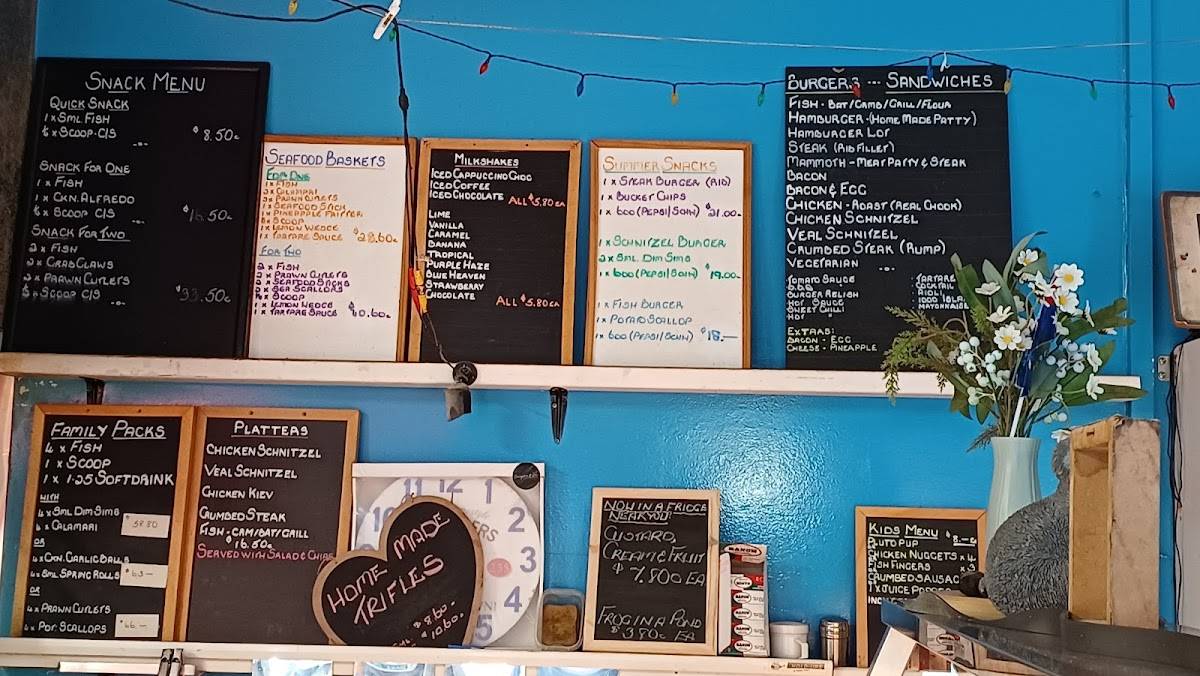 SNACK MENU
QUICK SNACK
1 x SML FISH
½ x SCOOP C/S $8.50c
SNACK FOR ONE
1 x FISH
1 x CKN. ALFREDO
½ x SCOOP C/S $16.50c
SNACK FOR TWO
2 x FISH
2 x CRAB CLAWS
2 x PRAWN CUTLETS
x SCOOP C/S $33.50c
SEAFOOD BASKETS
FOR ONE
1 x FISH
x CALAMARI
x PRAWN CUTLETS
1 x SEAFOOD STICK
1 x PINEAPPLE FRITTER
x SCOOP
1 x LEMON WEDGE
1 x TARTARE SAUCE $28.60c
FOR TWO
2 x FISH
x PRAWN CUTLETS
x SEAFOOD STICKS
x SEA SCALLOPS
x SCOOP
1 x LEMON WEDGE
1 x TARTARE SAUCE 0.60c
MILKSHAKES
ICED CAPPUCCINO CHOC
ICED COFFEE
ICED CHOCOLATE ALL $5.80 EA
LIME
VANILLA
CARAMEL
BANANA
TROPICAL
PURPLE HAZE
BLUE HEAVEN
STRAWBERRY
CHOCOLATE ALL $5.80 EA
SUMMER SNACKS
1 x STEAK BURGER (RIB)
1 x BUCKET CHIPS
1 x 600 (PEPSI/SCHW) $21.00c
1 x SCHNITZEL BURGER
2 x SML DIM SIMS
1 x 600 (PEPSI/SCHW) $19.00c
1 x FISH BURGER
1 x POTATO SCALLOP
1 x 600 (PEPSI/SCHW) $18.-
BURGERS --- SANDWICHES
FISH - BAT/CRMB/GRILL/FLOUR
HAMBURGER - (HOME MADE PATTY)
HAMBURGER LOT
STEAK (RIB FILLET)
MAMMOTH - MEAT PATTY & STEAK
BACON
BACON & EGG
CHICKEN - ROAST (REAL CHOOK)
CHICKEN SCHNITZEL
VEAL SCHNITZEL
CRUMBED STEAK (RUMP)
VEGETARIAN
TOMATO SAUCE - TARTARE
B.B.Q - COCKTAIL
BURGER RELISH - AIOLI
HOT SAUCE - 1000 ISLA
SWEET CHILLI - MAYONNAISE
HOT
EXTRAS:
BACON - EGG
CHEESE - PINEAPPLE
FAMILY PACKS
4 x FISH
1 x SCOOP
1 x 1.25 SOFTDRINK
WITH
4 x SML DIM SIMS
4 x CALAMARI 58.80
OR
4 x CKN. GARLIC BALLS
4 x SML SPRING ROLLS $63-
OR
4 x PRAWN CUTLETS
4 x POT. SCALLOPS $66.-
PLATTERS
CHICKEN SCHNITZEL
VEAL SCHNITZEL
CHICKEN KIEV
CRUMBED STEAK
FISH - CRM/BAT/GRILL
$16.50c
SERVED WITH SALAD & CHIPS
12 1 2 3 4 5 10
HOME MADE
TRIFLES
$8.60-
$10.60-
NOW IN A FRIDGE
NEAR YOU!
CUSTARD,
CREAM & FRUIT
$7.80c EA
FROG IN A POND
$3.80c EA
KIDS MENU $8.-
PLUTO PUP
CHICKEN NUGGETS x 4
FISH FINGERS x 3
CRUMBED SAUSAG
1 x JUICE POPPER